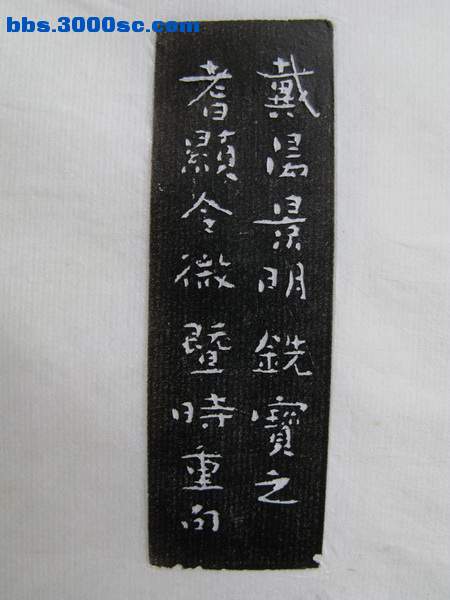 bbs.3000sc.com
戴湯景明銑寶之
耆顯令微暨時重向